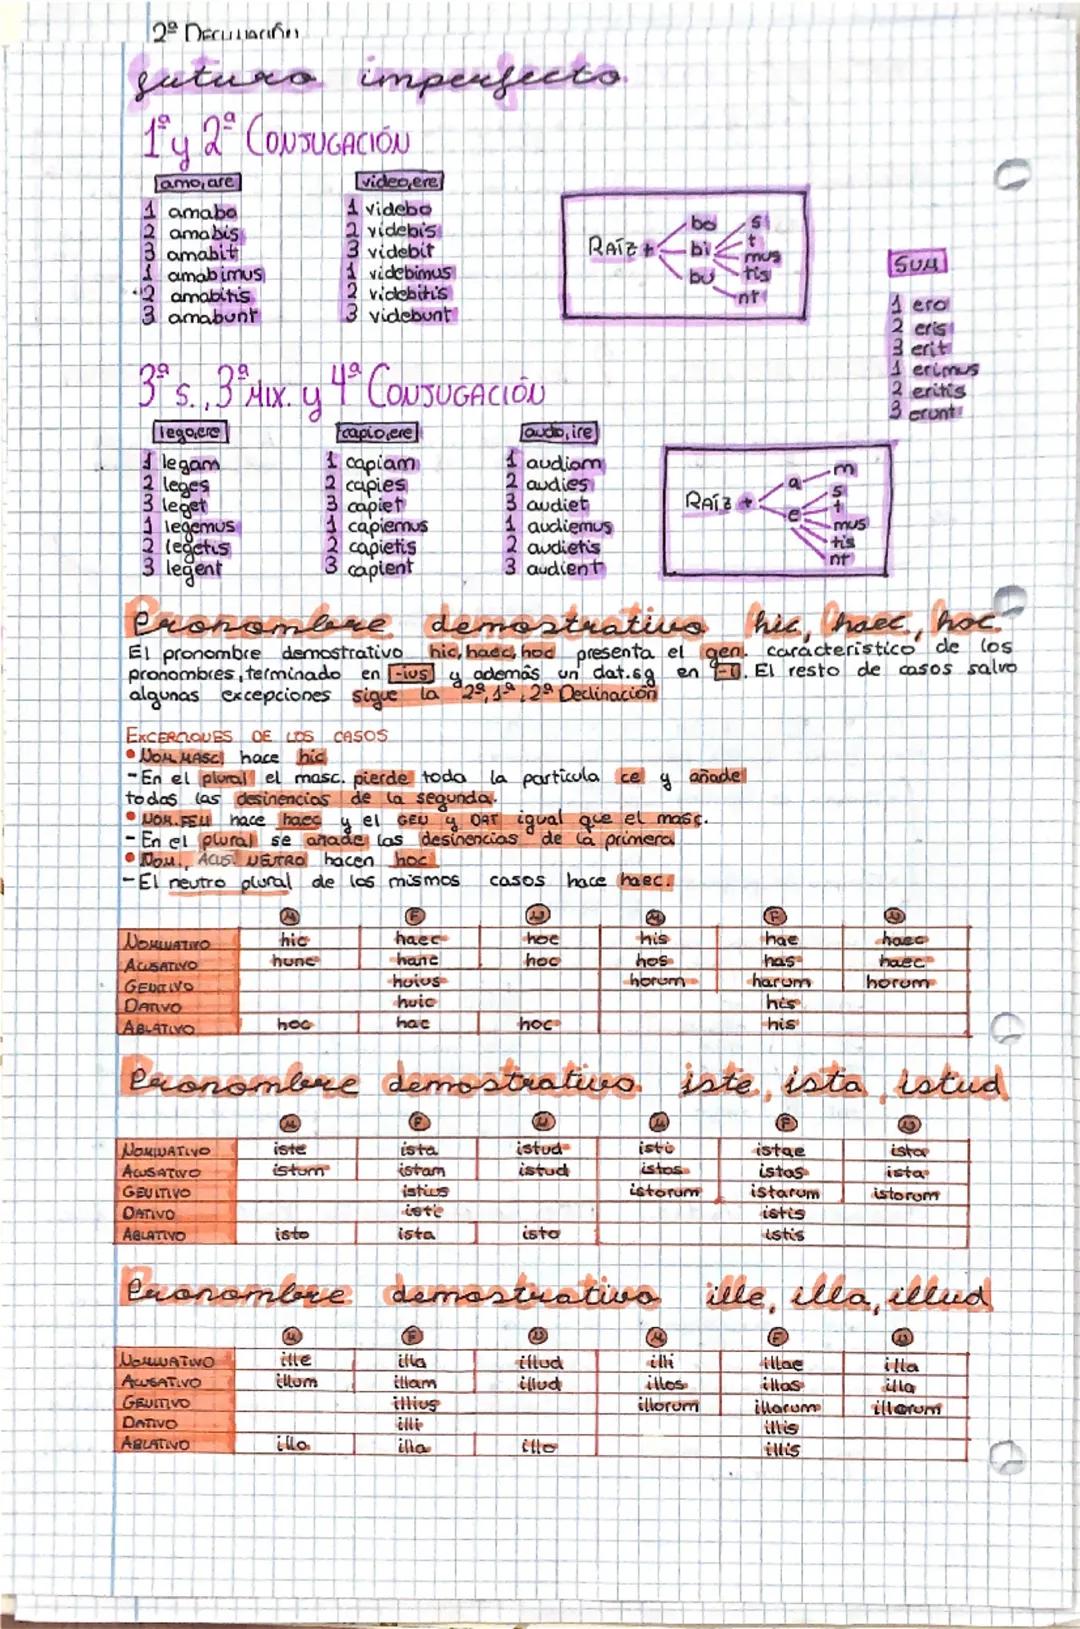 2ª Declinación
futuro imperfecto
1ª y 2ª CONJUGACIÓN
amo, are video, ere
1 amabo 1 videbo
2 amabis 2 videbis
3 amabit 3 videbit
1 amabimus 1 videbimus
2 amabitis 2 videbitis
3 amabunt 3 videbunt
RAÍZ + bo bi bu s t mus tis nt
SUM
1 ero
2 eris
3 erit
1 erimus
2 eritis
3 erunt
3ª S., 3ª MIX. y 4ª CONJUGACIÓN
lego, ere capio, ere audio, ire
1 legam 1 capiam 1 audiam
2 leges 2 capies 2 audies
3 leget 3 capiet 3 audiet
1 legemus 1 capiemus 1 audiemus
2 legetis 2 capietis 2 audietis
3 legent 3 capient 3 audient
RAÍZ + a e m s t mus tis nt
Pronombre demostrativo hic, haec, hoc
El pronombre demostrativo hic, haec, hoc presenta el gen. característico de los
pronombres, terminado en -ius y además un dat.sg en -i. El resto de casos salvo
algunas excepciones sigue la 2ª, 1ª, 2ª Declinación
EXCERCIONES DE LOS CASOS
• NOM. MASC. hace hic
- En el plural el masc. pierde toda la partícula ce y añade
todas las desinencias de la segunda.
• NOM. FEM hace haec y el GEN y DAT igual que el masc.
- En el plural se añade las desinencias de la primera
• NOM., ACUS. NEUTRO hacen hoc
- El neutro plural de los mismos casos hace haec.
M F N M F N
NOMINATIVO hic haec hoc his hae haec
ACUSATIVO hunc hanc hoc hos has haec
GENITIVO huius horum harum horum
DATIVO huic his
ABLATIVO hoc hac hoc his
Pronombre demostrativo iste, ista, istud
M F N M F N
NOMINATIVO iste ista istud isti istae ista
ACUSATIVO istum istam istud istos istas ista
GENITIVO istius istorum istarum istorum
DATIVO isti istis
ABLATIVO isto ista isto istis
Pronombre demostrativo ille, illa, illud
M F N M F N
NOMINATIVO ille illa illud illi illae illa
ACUSATIVO illum illam illud illos illas illa
GENITIVO illius illorum illarum illorum
DATIVO illi illis
ABLATIVO illo illa illo illis